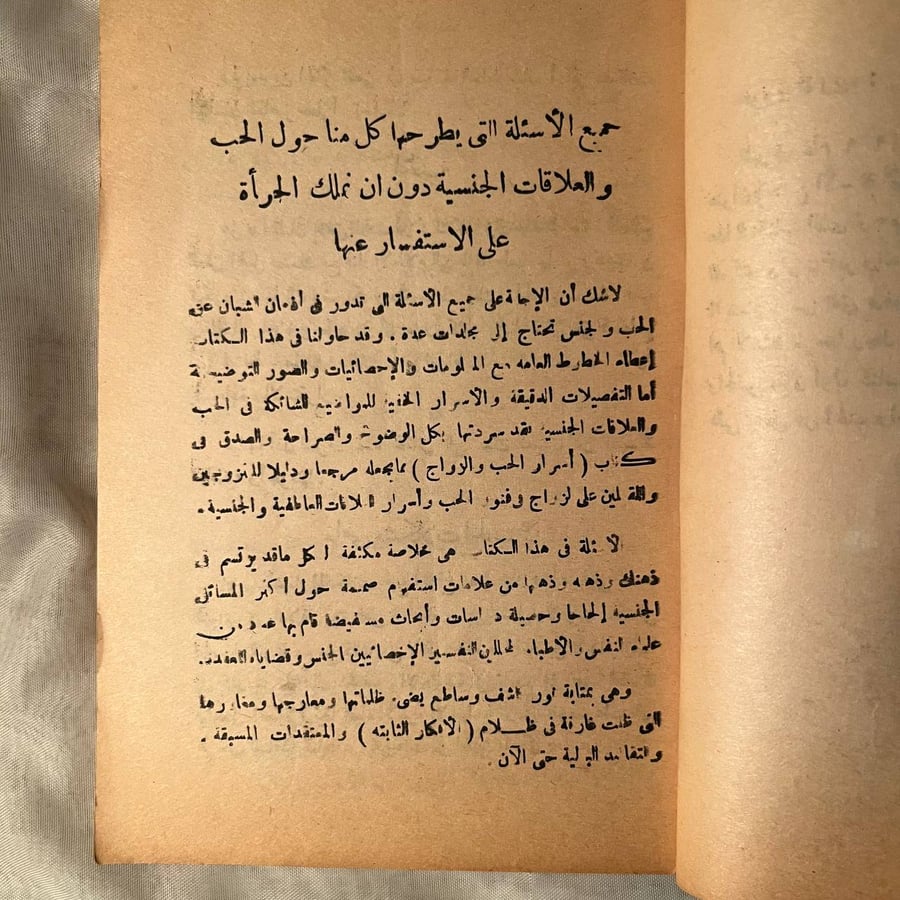 جميع الأسئلة التى يطرحها كل منا حول الحب
والعلاقات الجنسية دون ان نملك الجرأة
على الاستفسار عنها
لاشك أن الإجابة على جميع الأسئلة التى تدور فى أذهان الشبان عن
الحب والجنس تحتاج إلى مجلدات عدة . وقد حاولنا فى هذا الكتاب
إعطاء الخطوط العامه مع المعلومات والإحصائيات والصور التوضيحية
أما التفصيلات الدقيقة والأسرار الخفية للمواضيع الشائكة فى الحب
والعلاقات الجنسية فقد سردتها بكل الوضوح والصراحة والصدق فى
كتاب ( أسرار الحب والزواج ) مما يجعله مرجعا ودليلا للمتزوجين
والمقبلين على الزواج وفنون الحب وأسرار العلاقات العاطفية والجنسية .
الأسئلة فى هذا الكتاب هى خلاصة مكثفة لكل ماقد يرتسم فى
ذهنك وذهنه وذهنها من علامات استفهام حول أكثر المسائل
الجنسية إلحاحا وحصيلة دراسات وأبحاث مستفيضة قام بها عدد من
علماء النفس والأطباء المحللين النفسيين الإخصائيين الجنس وقضاياه المعقدة.
وهى بمثابة نور كاشف وساطع يضىء ظلماتها ومعارجها ومغاورها
التى ظلت غارقة فى ظلام ( الأفكار الثابته ) والمعتقدات المسبقة .
والتقاليد البالية حتى الآن .